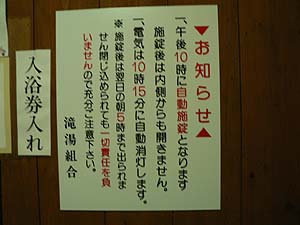 ▼お知らせ▲
一、午後10時に自動施錠となります
施錠後は内側からも開きません。
一、電気は10時15分に自動消灯します。
※ 施錠後は翌日の朝5時まで出られま
せん閉じ込められても一切責任を負
いませんので充分ご注意下さい。
滝湯組合
入浴券入れ